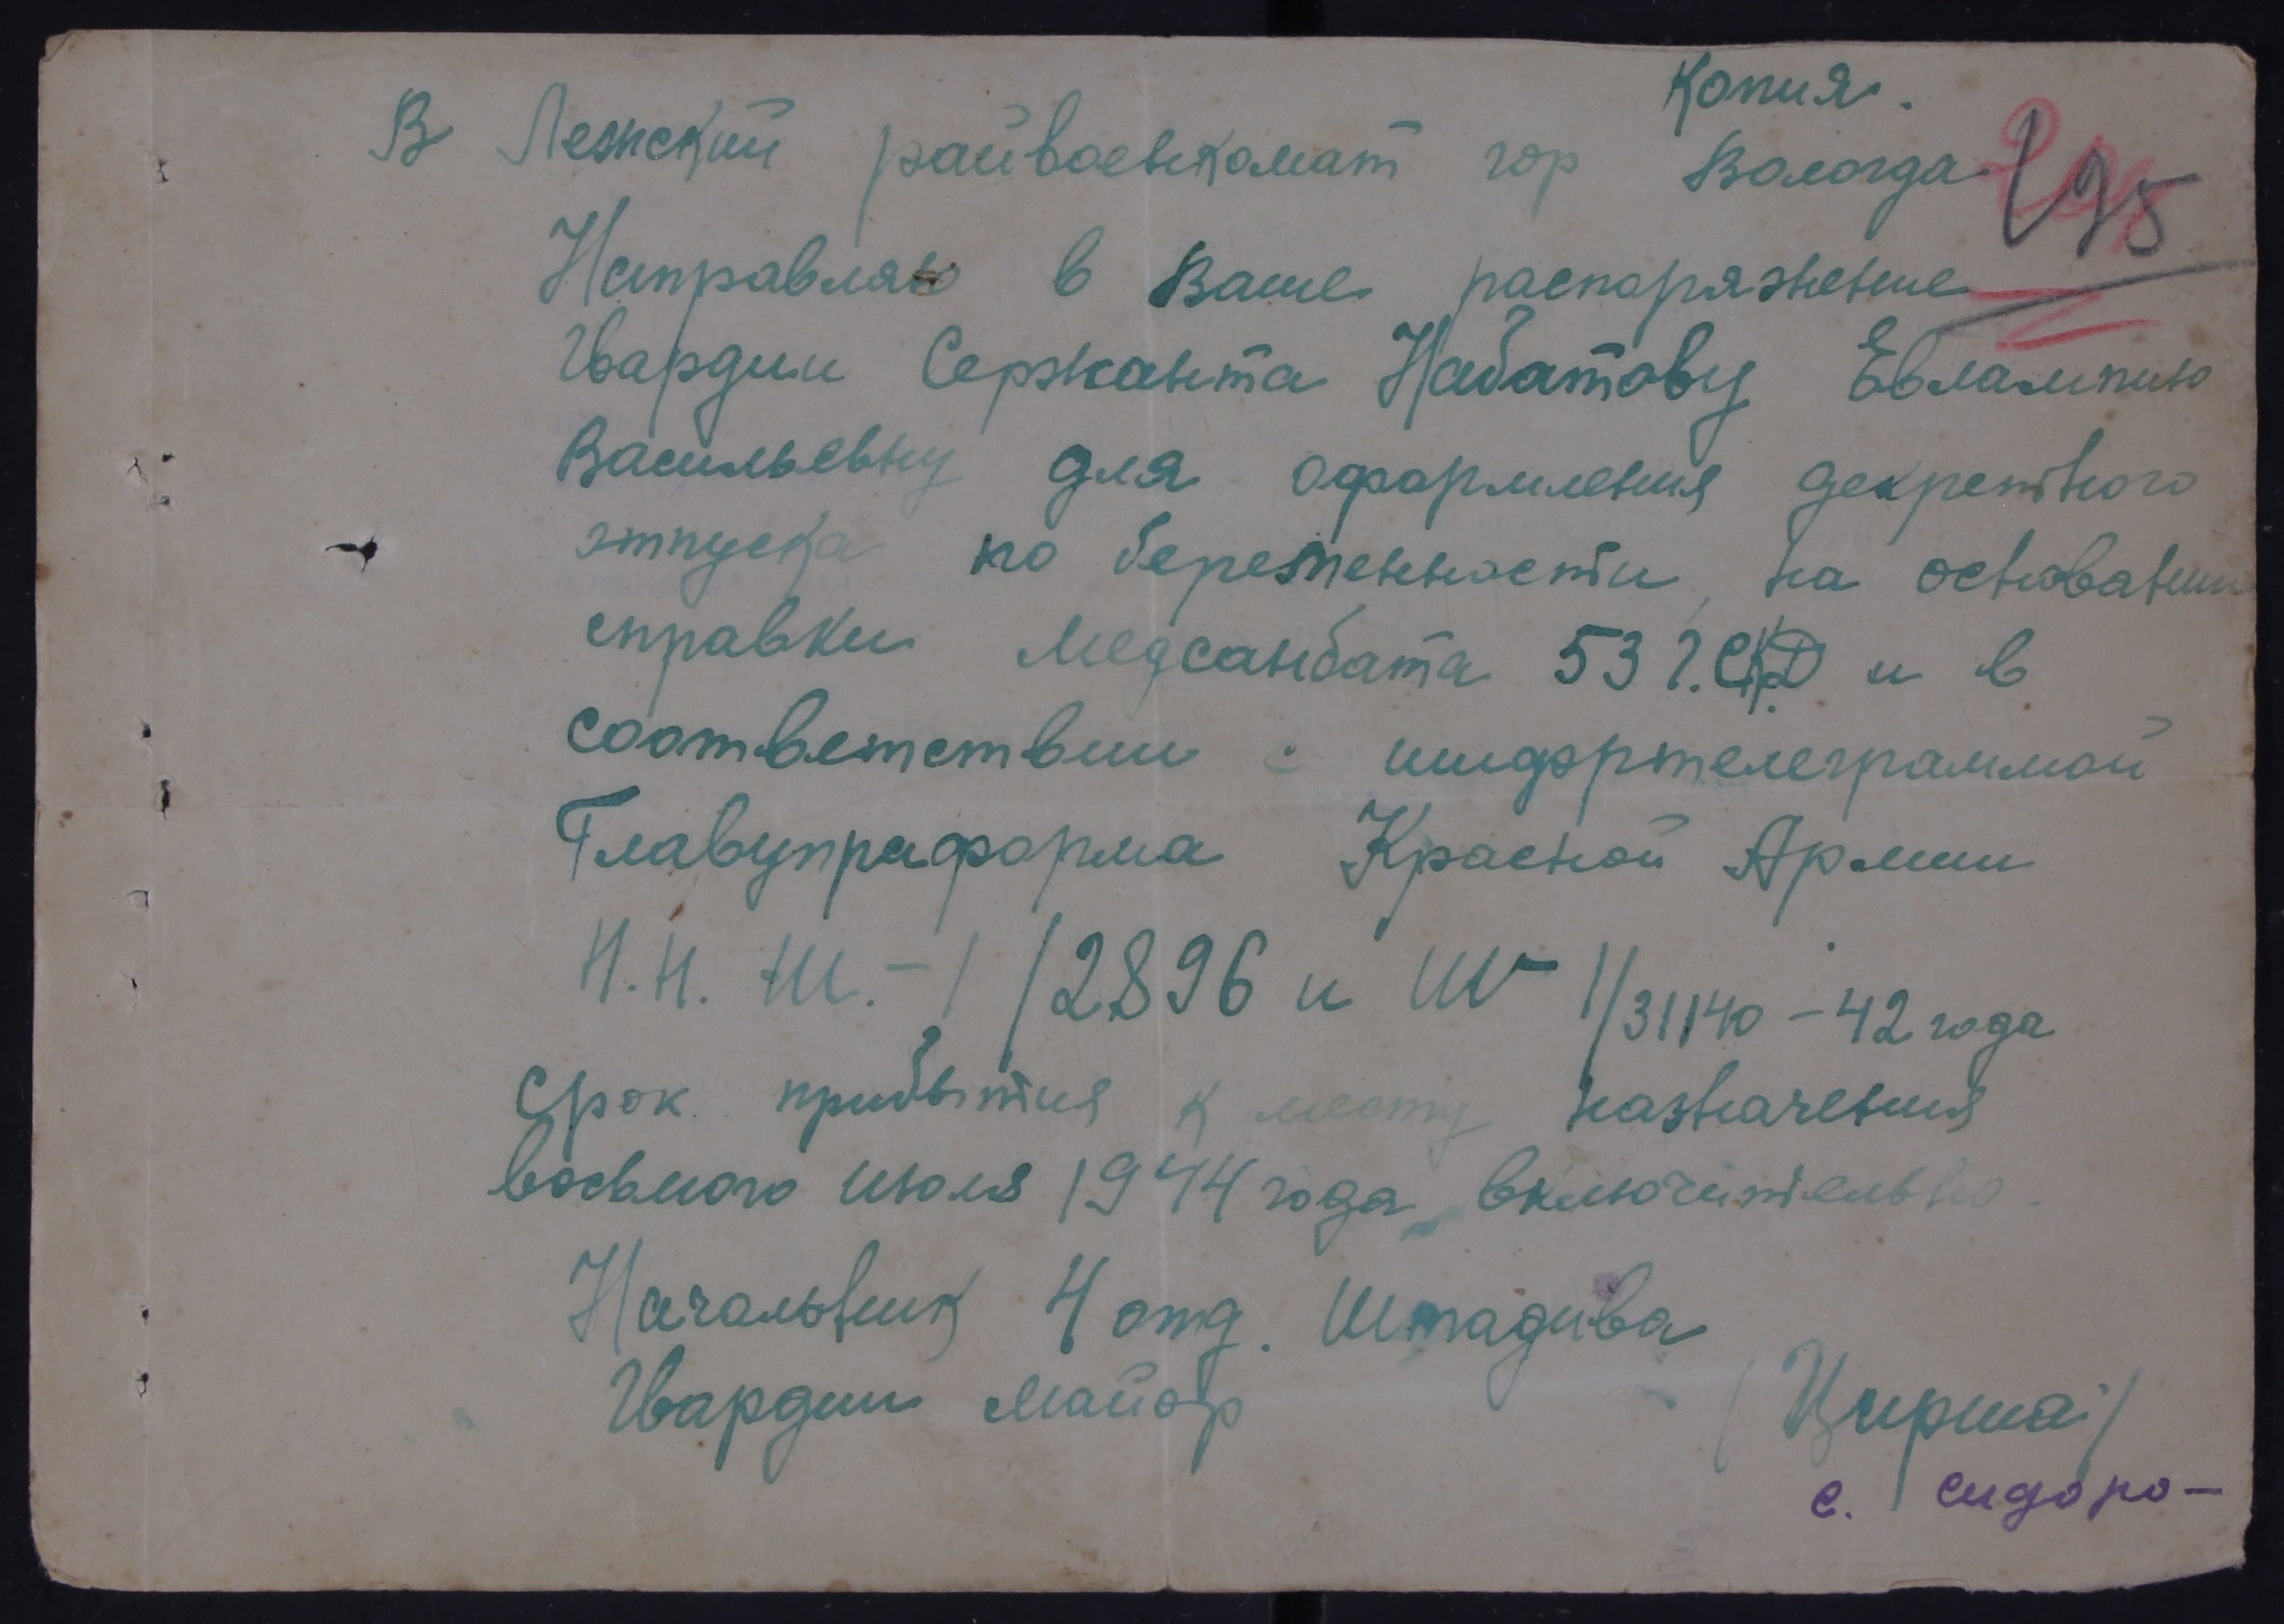 Копия.
В Лежский райвоенкомат гор Вологда
195
Направляю в Ваше распоряжение
Гвардии Сержанта Набатову Евлампию
Васильевну для оформления декретного
отпуска по беременности, на основании
справки Медсанбата 53 г. СКД и в
соответствии с шифртелеграммой
Главупраформа Красной Армии
Н.Н. Ш.-1/2896 и Ш- 1/31140-42 года
Срок прибытия к месту назначения
восьмого июля 1944 года включительно.
Начальник 4 отд. Штадива
Гвардии майор
/Цирша/
с. Сидоро-